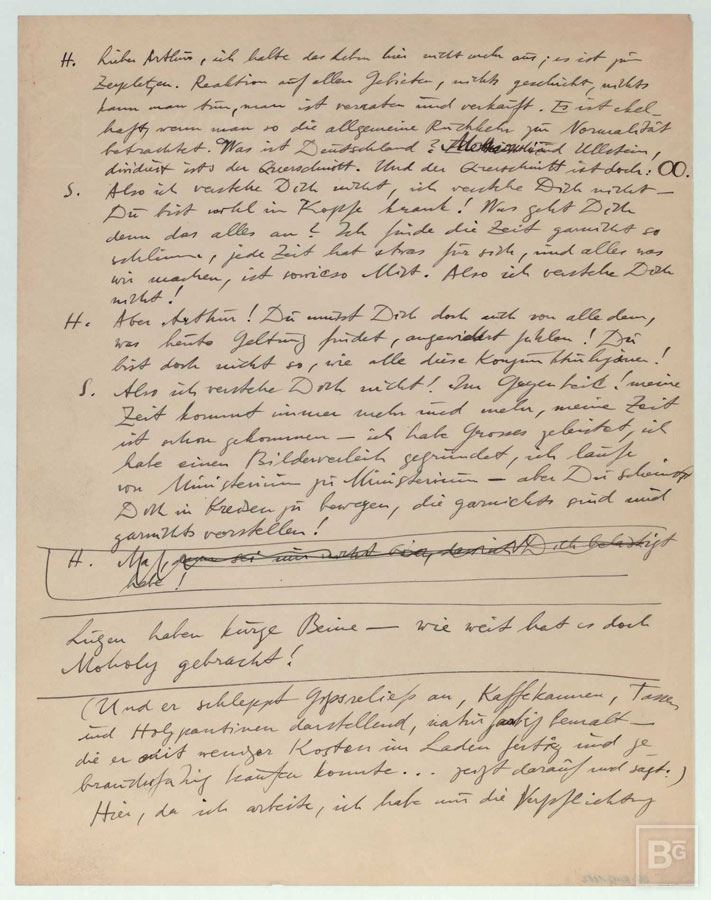 H. Lieber Arthur, ich halte das Leben hier nicht mehr aus; es ist zum
Zerplatzen. Reaktion auf allen Gebieten, nichts geschieht, nichts
kann man tun, man ist verraten und verkauft. Es ist ekel-
haft, wenn man so die allgemeine Rückkehr zur Normalität
betrachtet. Was ist Deutschland? und Ullstein,
dividiert ists der Querschnitt. Und der Querschnitt ist doch: OO.
S. Also ich verstehe Dich nicht, ich verstehe Dich nicht —
Du bist wohl im Kopfe krank! Was geht Dich
denn das alles an? Ich finde die Zeit garnicht so
schlimm, jede Zeit hat etwas für sich, und alles was
wir machen, ist sowieso Mist. Also ich verstehe Dich
nicht!
H. Aber Arthur! Du musst Dich doch auch von alle dem,
was heute Geltung findet, angewidert fühlen! Du
bist doch nicht so, wie alle diese Konjunkturhyänen!
S. Also ich verstehe Dich nicht! Im Gegenteil! meine
Zeit kommt immer mehr und mehr, meine Zeit
ist schon gekommen — ich habe Grosses geleistet, ich
habe einen Bilderverleih gegründet, ich laufe
von Ministerium zu Ministerium — aber Du scheinst
Dich in Kreisen zu bewegen, die garnichts sind und
garnichts vorstellen!
H. Na, dann sei mir nicht bös, dass ich Dich belästigt
habe!
Lügen haben kurze Beine — wie weit hat es doch
Moholy gebracht!
(Und er schleppt Gipsreliefs an, Kaffekannen, Tassen
und Holzpantinen darstellend, bemalt —
die er mit weniger Kosten im Laden fertig und ge-
brauchsfähig kaufen konnte... zeigt darauf und sagt:)
Hier, da ich arbeite, ich habe nur die Verpflichtung
BG